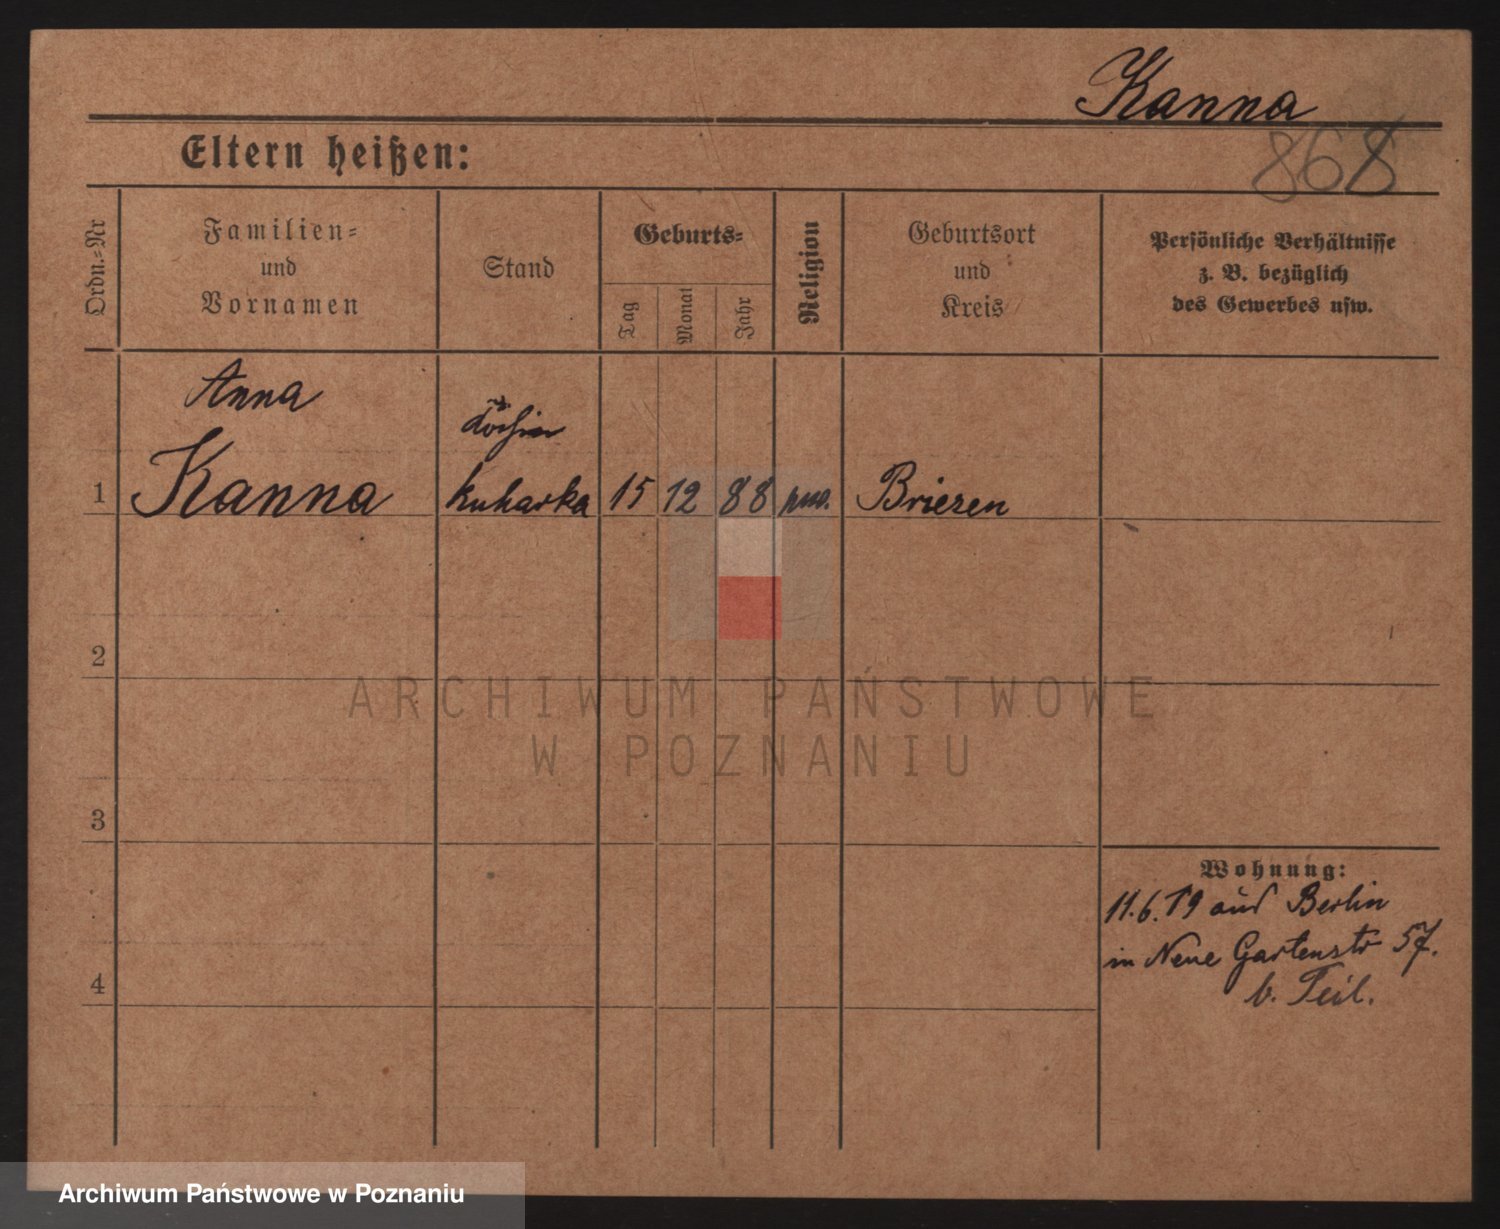 Kanna
868
Eltern heißen:
Ordn.-Nr
Familien-
und
Vornamen
Stand
Geburts-
Tag
Monat
Jahr
Religion
Geburtsort
und
Kreis
Persönliche Verhältnisse
z. B. bezüglich
des Gewerbes usw.
Anna
1 Kanna kuharka 15 12 88 Briesen
2
3
4
ARCHIWUM PAŃSTWOWE
W POZNANIU
Wohnung:
11.6.19 aus Berlin
in Neue Gartenstr 57.
b. Teil.
Archiwum Państwowe w Poznaniu